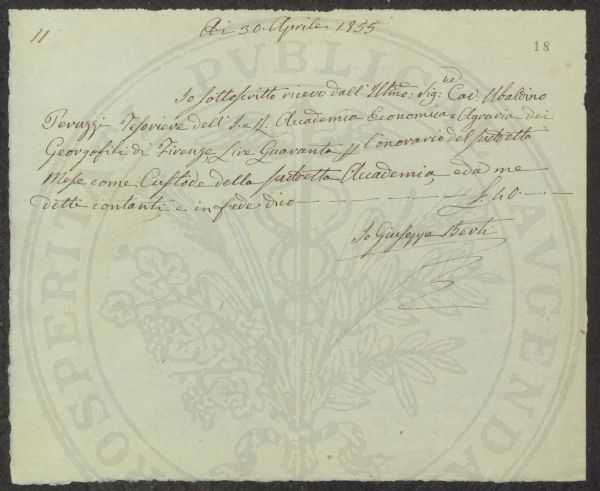 11
Ai 30. Aprile 1855
18
Io sottoscritto ricevo dall'Illmo: Sig:re Cav: Ubaldino
Peruzzi Tesoriere dell'I. e R: Accademia Economico-Agraria dei
Georgofili di Firenze, Lire Quaranta p l'onorario del sudetto
Mese come Custode della sudetta Accademia, e da me
detti contanti e in fede dico £ 40.
Io Giuseppe Berti
PROSPERITATI PUBLICAE AUGENDAE